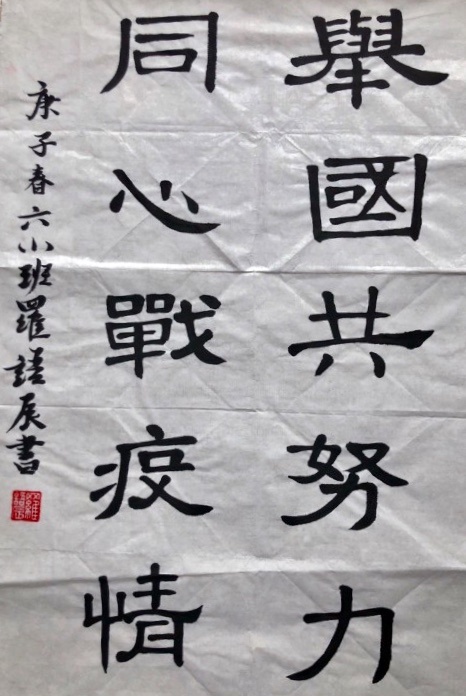 舉國共努力
同心戰疫情
庚子春六小班羅諾辰書